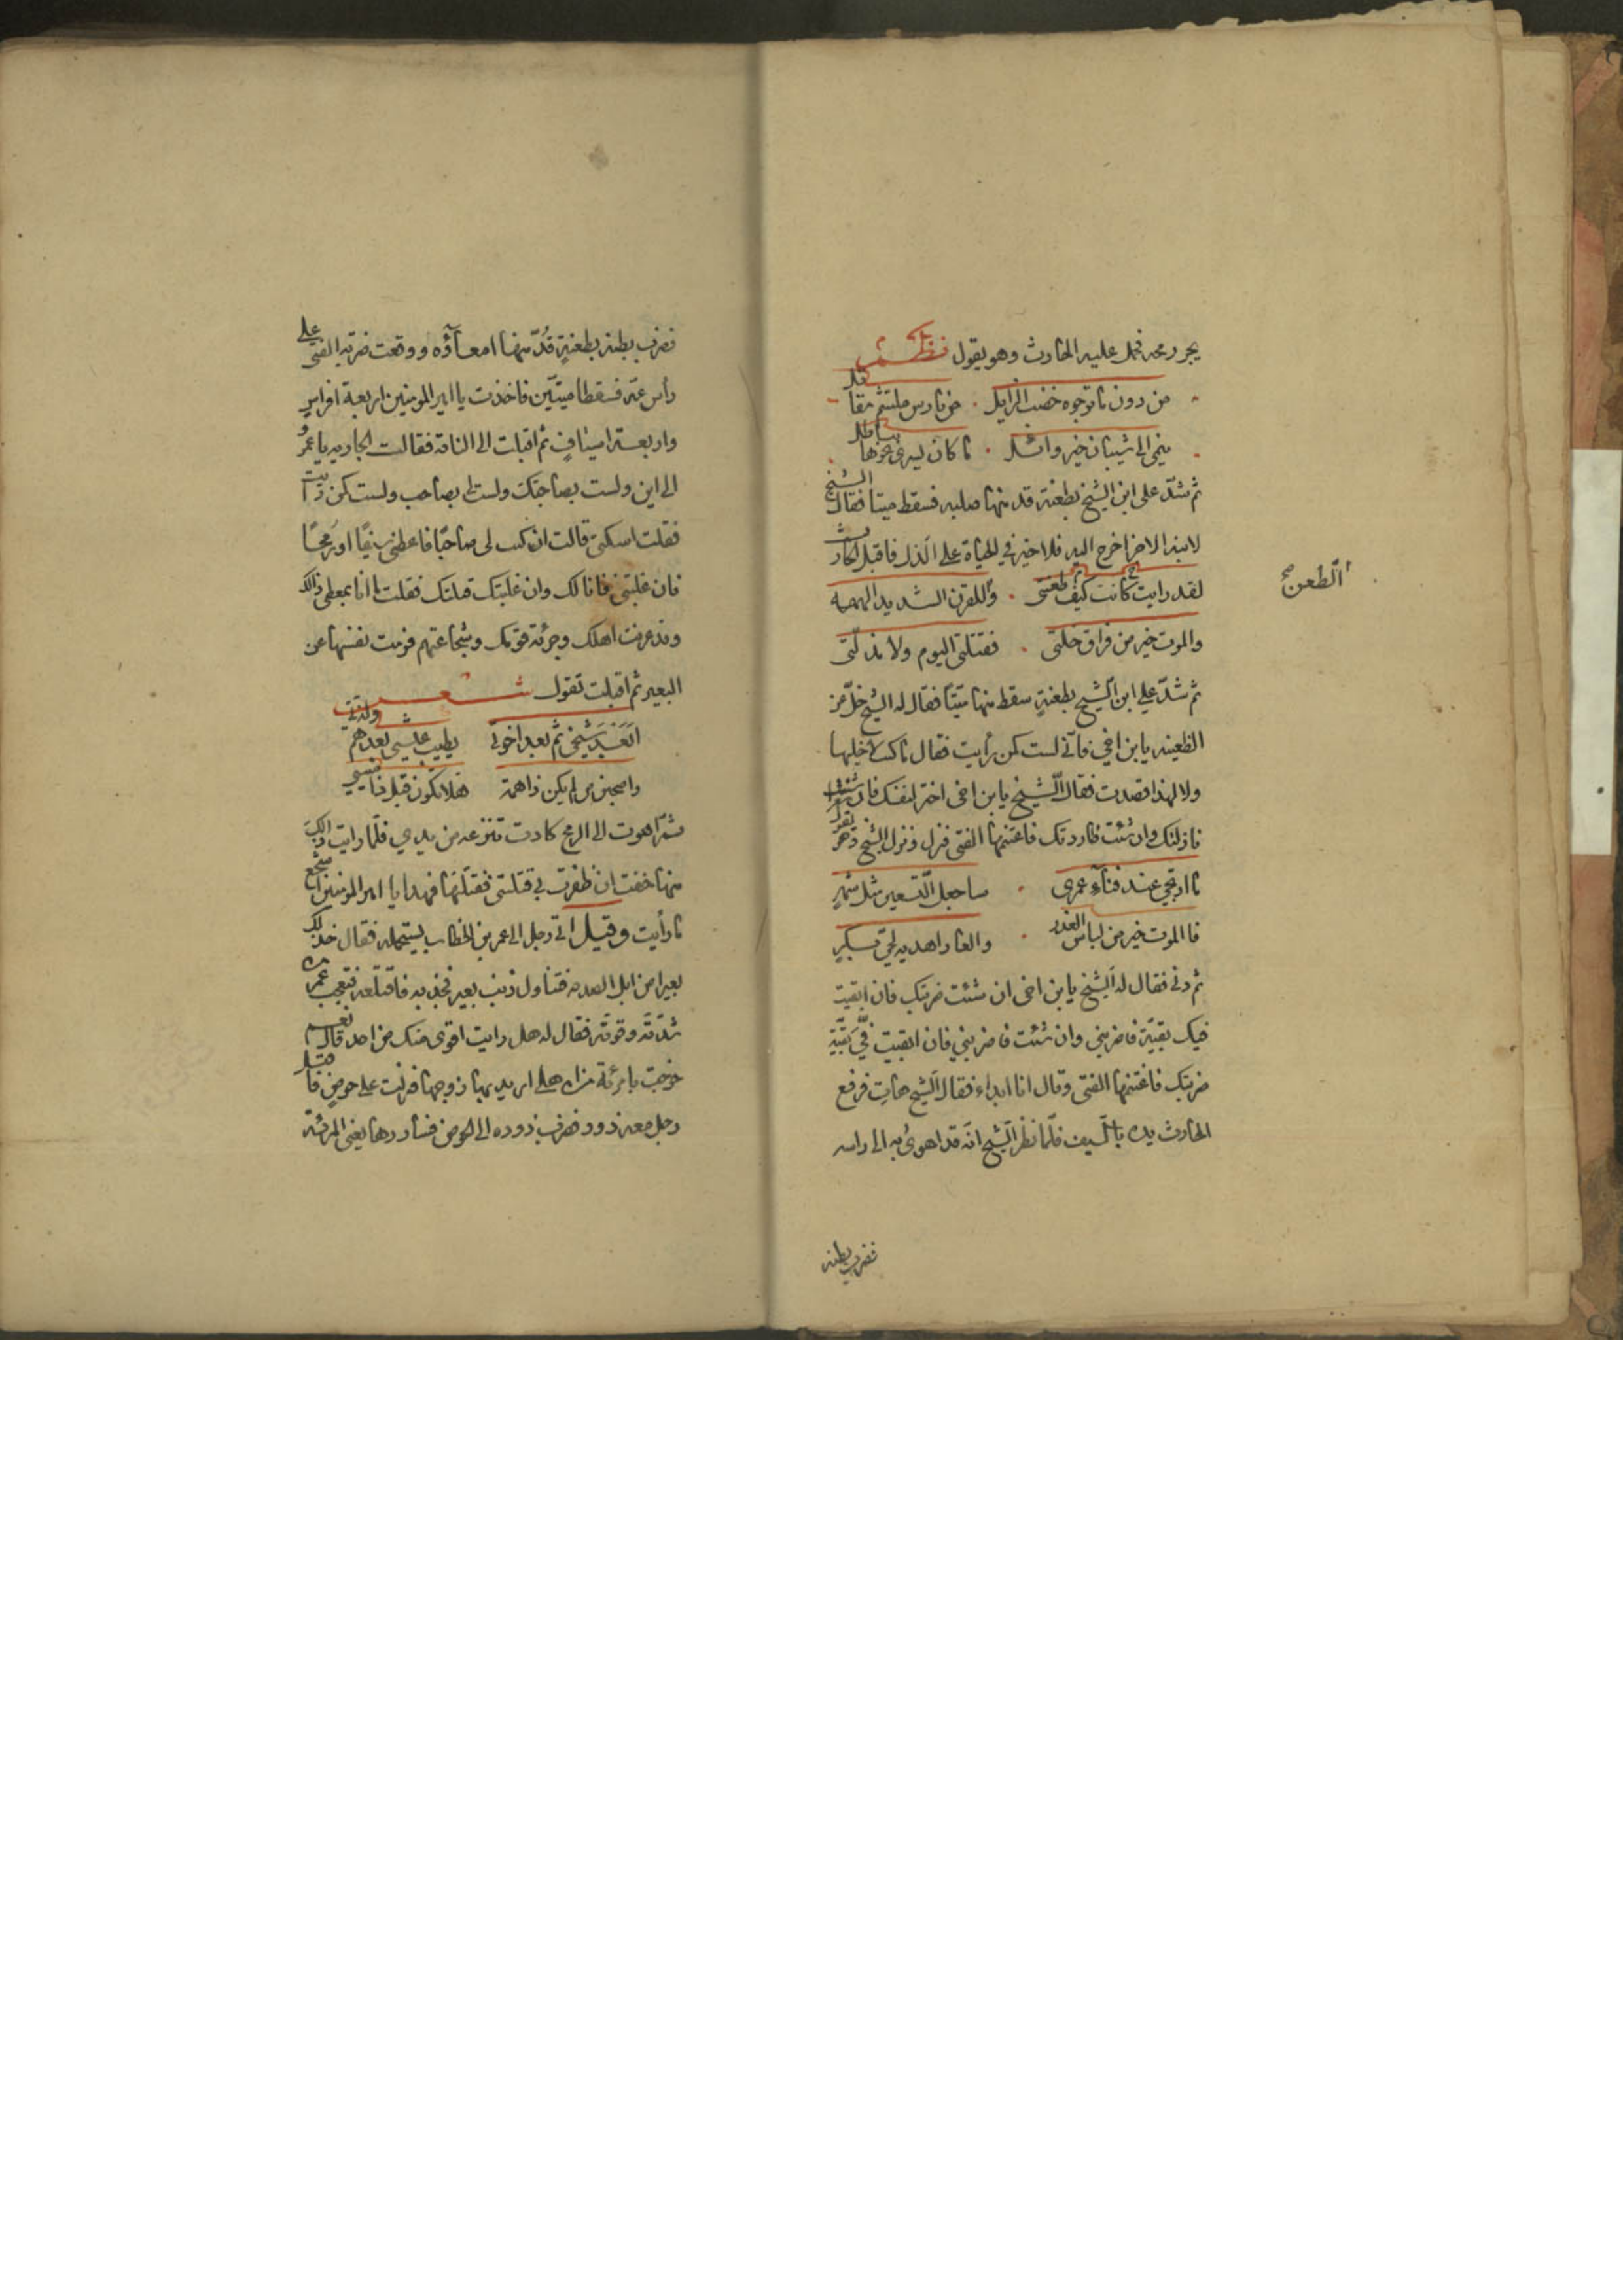 يجر رمحه فحمل عليه الحارث وهو يقول نظم
من دون ما ترجوه خضب الذابل من فارس ملثم مقاتل
ينمى الى شيبان خير وائل ما كان يسرى نحوها بباطل
ثم شد على ابن الشيخ بطعنة قد منها صلبه فسقط ميتا فقال الشيخ
لابنه الاخر اخرج اليه فلا خير في الحياة على الذل فاقبل الحارث
لقد رايت كيف كانت طعنتى والطعن للقرن الشديد الهمه
والموت خير من فراق خلتى فقتلتى اليوم ولا مذلتى
ثم شد على ابن الشيخ بطعنة سقط منها ميتا فقال له الشيخ خل عن
الظعينه يا بن اخي فاني لست كمن رأيت فقال ما كنت لاخليها
ولا لهذا قصدت فقال الشيخ يا بن اخى اختر لنفسك فان شئت
نازلتك وان شئت طاردتك فاغتنمها الفتى فنزل ونزل الشيخ وهو يقول
ما ارتجى عند فنآء عمرى ساجعل التسعين مثل شهر
فالموت خير من لباس الغدر والعار اهديه لحى بكر
ثم دنى فقال له الشيخ يا بن اخى ان شئت ضربتك فان ابقيت
فيك بقية فاضربنى وان شئت فاضربني فان ابقيت في بقية
ضربتك فاغتنمها الفتى وقال انا ابداء فقال الشيخ هات فرفع
الحارث يده بالسيف فلما نظر الشيخ انه قد اهوى به الى راسه
فضرب بطنه
الطعن
فضرب بطنه بطعنة قد منها امعآؤه ووقعت ضربة الفتى على
رأس عمه فسقطا ميتين فاخذت يا امير المومنين اربعة افراس
واربعة اسياف ثم اقبلت الى الناقة فقالت الجاريه يا عمرو
الى اين ولست بصاحبتك ولست لى بصاحب ولست كمن رايت
فقلت اسكتى قالت ان كنت لى صاحبا فاعطنى سيفا او رمحا
فان غلبتنى فانا لك وان غلبتك قتلتك فقلت ما انا بمعطى ذالك
وقد عرفت اهلك وجرئة قومك وشجاعتهم فرمت نفسها عن
البعير ثم اقبلت تقول شعر
ابعد شيخى ثم بعد اخوتى يطيب عيشى بعدهم ولذتى
واصحبن من لم يكن ذا همة هلا تكون قبل ذا منيتى
ثم اهوت الى الرمح كادت تنزعه من يدي فلما رايت ذالك
منها خفت ان ظفرت بي قتلتنى فقتلتها فهذا يا امير المومنين اشجع
ما رأيت وقيل اتى رجل الى عمر بن الخطاب يستحمله فقال خذ لك
بعيرا من ابل الصدقه فتناول ذنب بعير فجذبه فاقتلعه فتعجب عمر
شدته وقوته فقال له هل رايت اقوى منك من احد قال نعم
خرجت بامرئة من اهلى اريد بها زوجها فنزلت على حوض فاقبل
رجل معه ذود فضرب ذوده الى الحوض فساورها يعنى المرئة